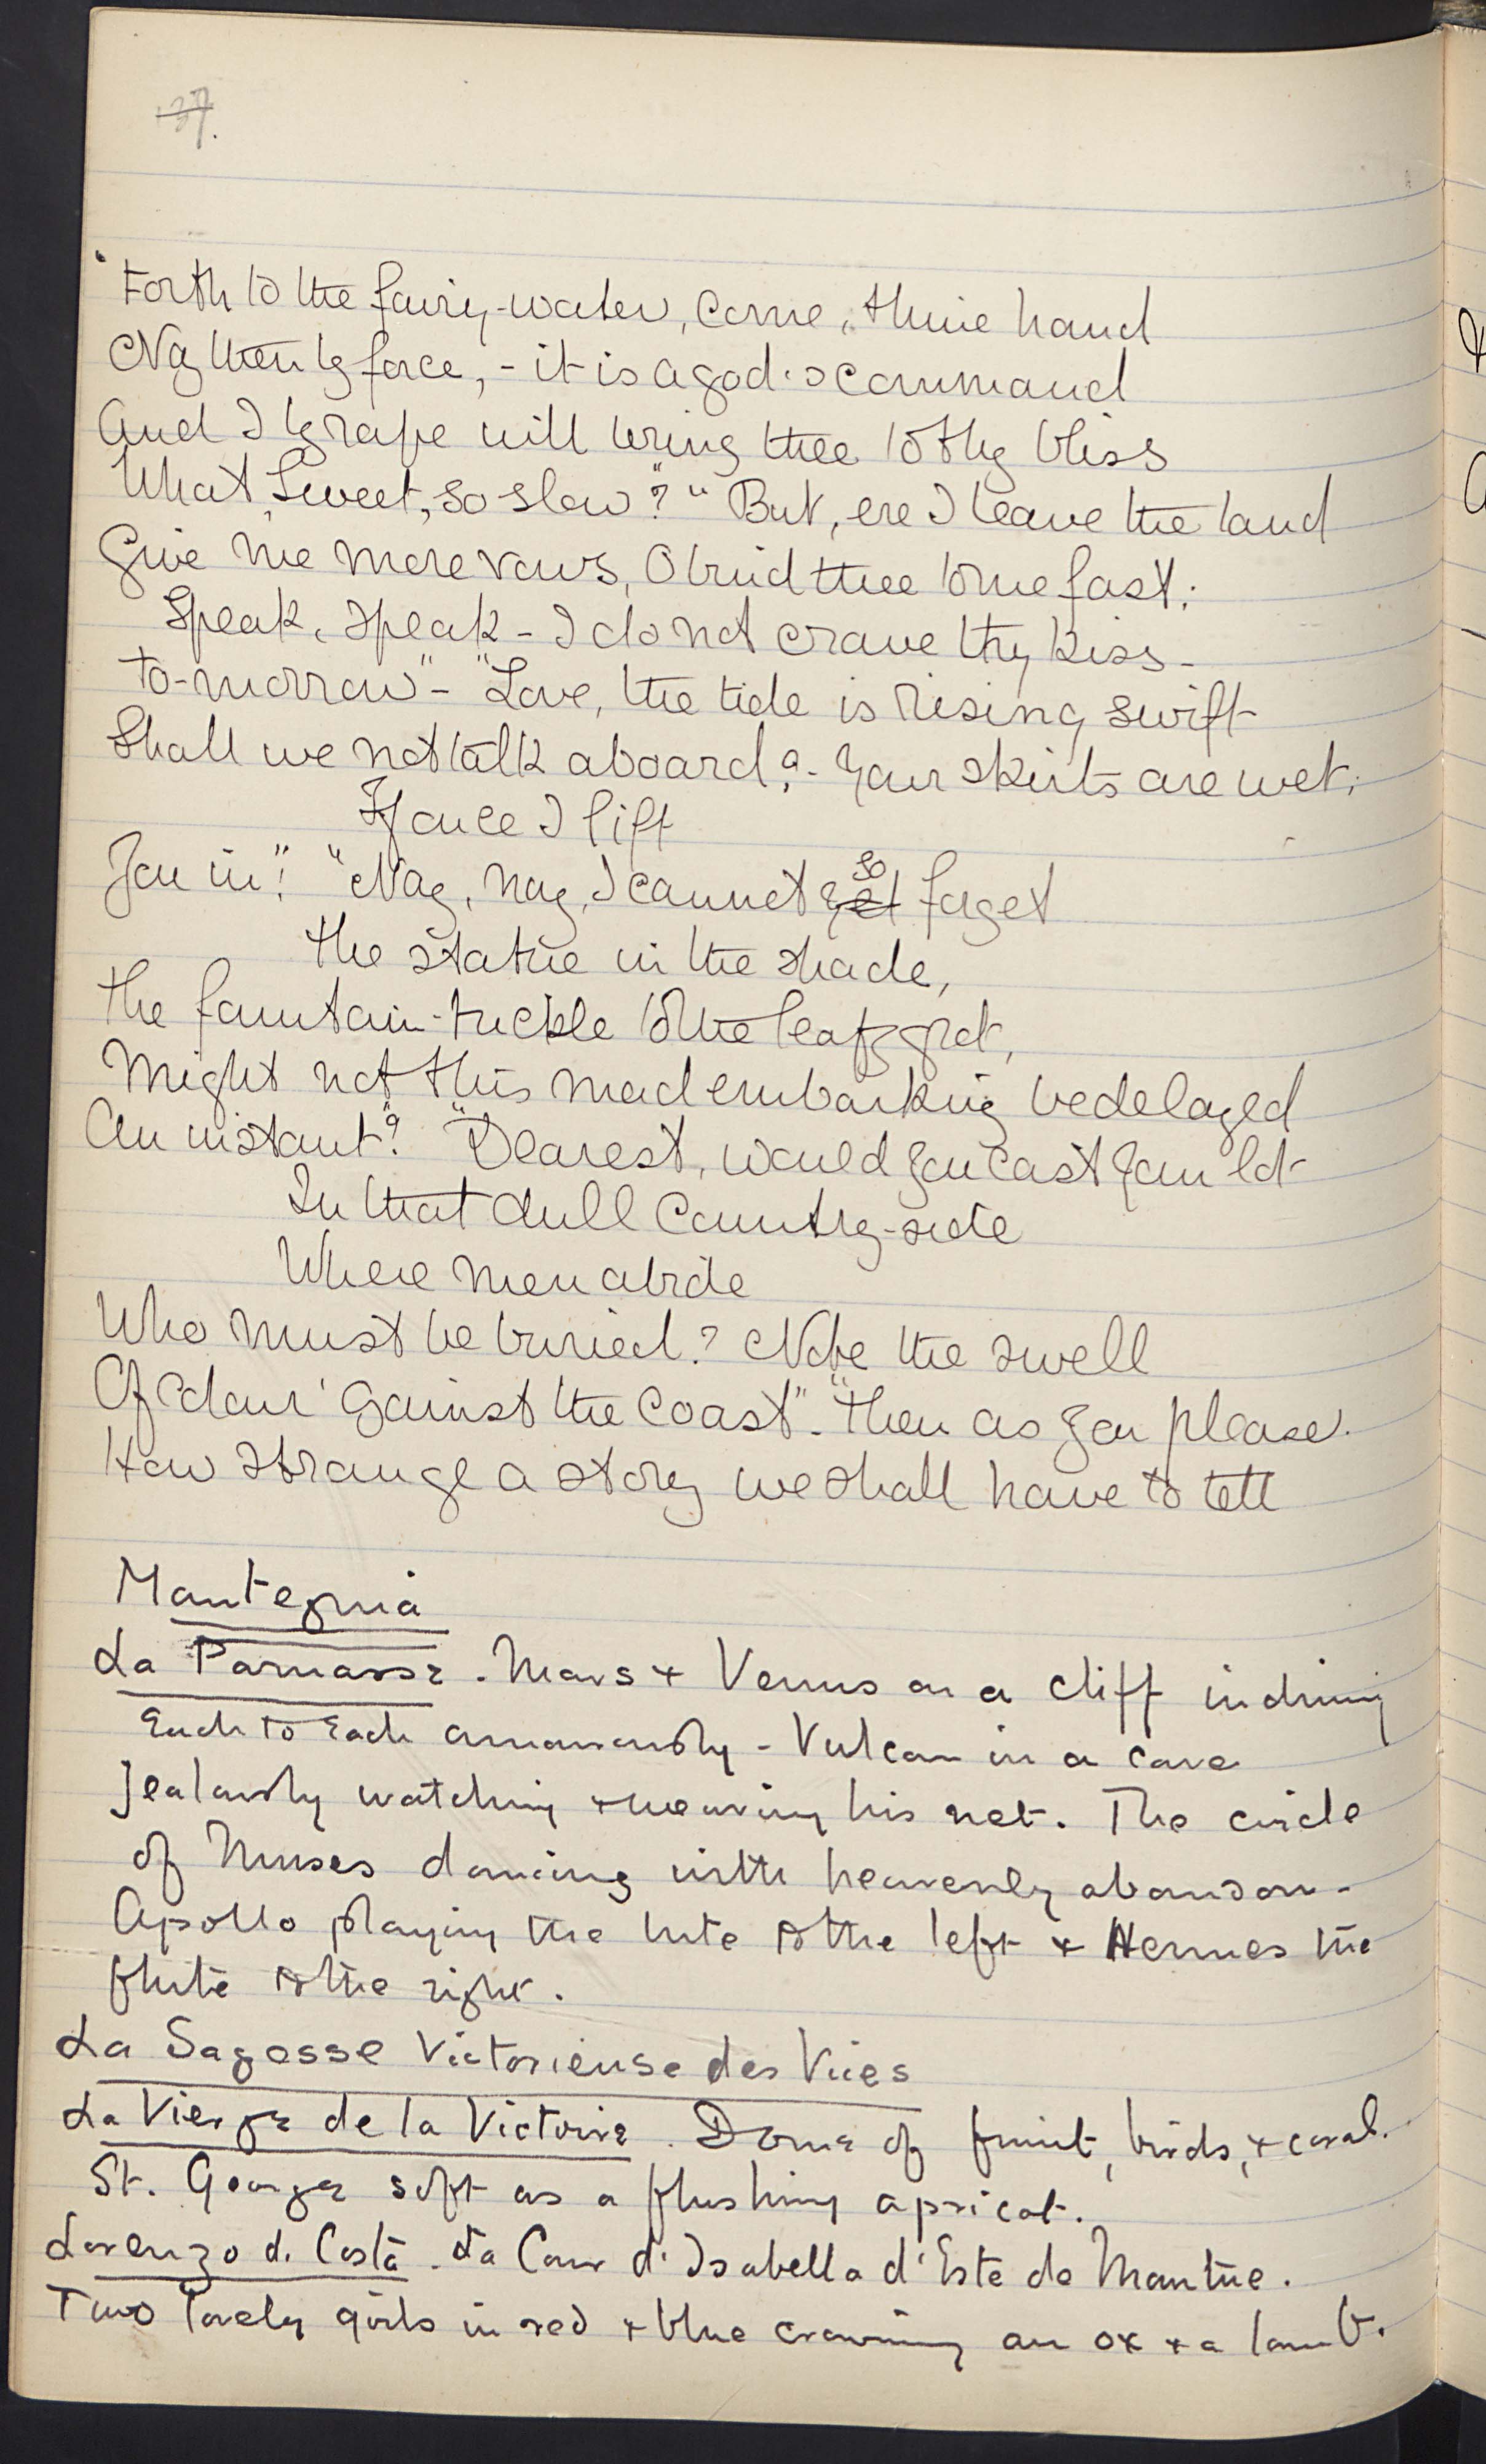 37.
"Forth to the fairy-water, come, thine hand
Nay then by force, - it is a god's command
And I by rape will bring thee to thy bliss
What, Sweet, so slow?" "But, ere I leave the land
Give me more vows, O bind thee to me fast;
Speak, speak - I do not crave thy kiss -
to-morrow" - "Love, the tide is rising swift
Shall we not talk aboard? - Your skirts are wet;
If once I lift
You in"! "Nay, nay, I cannot yet so forget
the statue in the shade,
The fountain-trickle to the leafy grot,
Might not this mad embarking be delayed
An instant"? "Dearest, would you cast your lot
In that dull Country-side
Where men abide
Who must be buried? Note the swell
Of colour 'gainst the Coast". "then as you please.
How strange a story we shall have to tell
Mantegnia
La Parnasse. Mars + Venus on a cliff inclining
Each to Each amorously - Vulcan in a cave
jealously watching + weaving his net. The circle
of Muses dancing with heavenly abandon -
Apollo playing the lute to the left + Hermes the
flute to the right.
La Sagesse Victorieuse des Vices
La Vierge de la Victoire. Dome of fruit, birds, + coral.
St. George soft as a flushing apricot.
Lorenzo di Costa. La Cour d'Isabella d'Este de Mantue.
Two lovely girls in red + blue crowning an ox + a lamb.